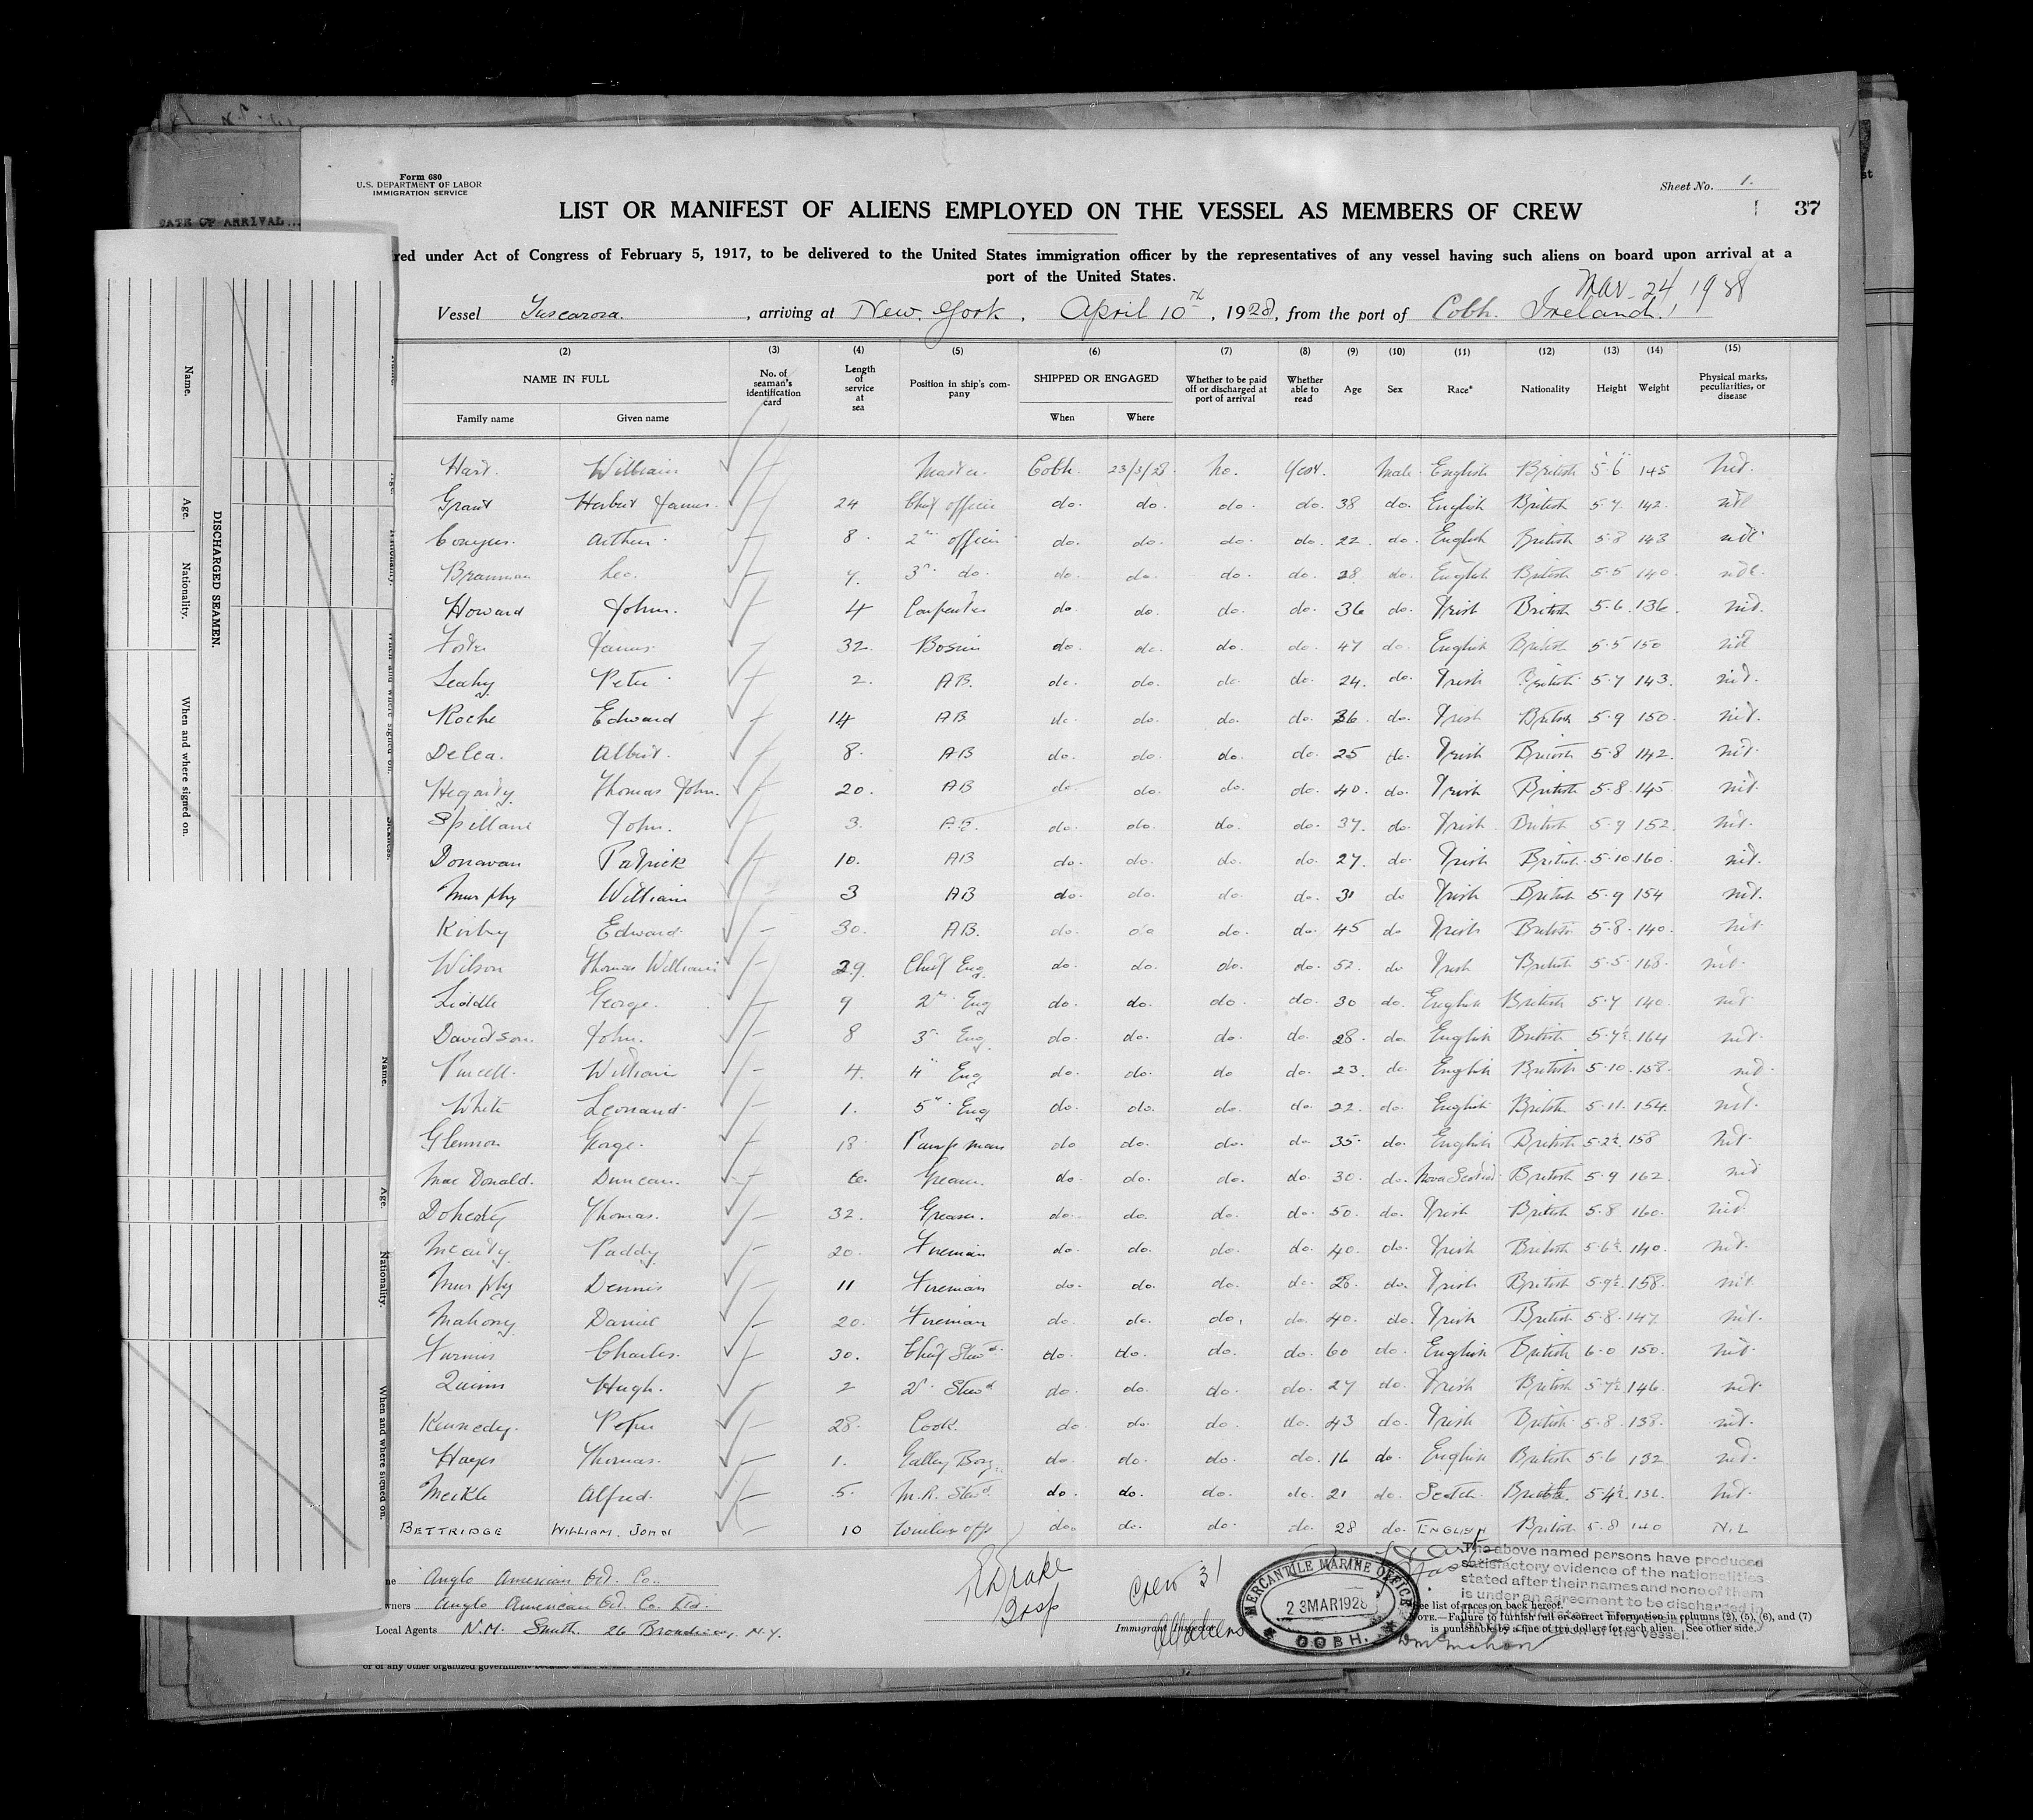 Form 680
U.S. DEPARTMENT OF LABOR
IMMIGRATION SERVICE
Sheet No. 1.
DATE OF ARRIVAL...
LIST OR MANIFEST OF ALIENS EMPLOYED ON THE VESSEL AS MEMBERS OF CREW
37
red under Act of Congress of February 5, 1917, to be delivered to the United States immigration officer by the representatives of any vessel having such aliens on board upon arrival at a
port of the United States.
Mar. 24 1928
Vessel Tuscarora. , arriving at New York, April 10th, 1928, from the port of Cobh. Ireland.
(2) (3) (4) (5) (6) (7) (8) (9) (10) (11) (12) (13) (14) (15)
NAME IN FULL No. of seaman's identification card Length of service at sea Position in ship's company SHIPPED OR ENGAGED Whether to be paid off or discharged at port of arrival Whether able to read Age Sex Race* Nationality Height Weight Physical marks, peculiarities, or disease
Family name Given name When Where
Hart. William Master. Cobh. 23/3/28. No. Yes. Male. English British 5 6 145 Nil.
Grant Herbert James. 24 Chief officer do. do. do. do. 38 do. English British 5.7. 142. nil
Conyers. Arthur. 8. 2nd officer do. do. do. do. 22. do. English British 5.8 143 nil.
Brannan Leo. 7. 3rd do. do. do. do. do. 28. do. English British 5.5 140. nil.
Howard John. 4 Carpenter do. do. do. do. 36 do. Irish British 5.6. 136. nil.
Foster James. 32. Bosun do. do. do. do. 47 do. English British 5.5 150 nil
Leahy Peter 2. AB. do. do. do. do. 24. do. Irish British 5.7 143. nil.
Roche Edward 14 AB do. do. do. do. 36. do. Irish British 5.9 150. nil.
Delea. Albert. 8. AB do. do. do. do. 25 do. Irish British 5.8 142. nil.
Hegarty Thomas John. 20. AB do. do. do. do. 40. do. Irish British 5.8. 145. nil.
Spillane John. 3. A.B. do. do. do. do. 37. do. Irish British 5.9 152. nil.
Donavan Patrick 10. AB do. do. do. do. 27. do. Irish British. 5.10. 160. nil.
Murphy William 3 AB do. do. do. do. 31 do Irish British 5.9 154 nil.
Kirby Edward. 30. AB. do. do do. do. 45 do Irish British 5.8. 140. nil.
Wilson Thomas William 29. Chief Eng. do. do. do. do. 52. do Irish British 5.5. 168. nil.
Liddle George. 9 2nd Eng do. do. do. do. 30 do. English British 5.7 140. nil.
Davidson. John. 8 3rd Eng. do. do. do. do. 28. do. English British 5.7½. 164 nil.
Purcell. William 4. 4th Eng do. do. do do. 23. do. English British 5.10. 158. nil.
White Leonard. 1. 5th Eng do. do. do. do. 22. do. English British 5.11. 154. nil.
Glennon George. 18. Pumpman do do. do. do. 35. do. English British 5.2½. 158 nil.
MacDonald. Duncan. 6. Greaser. do. do. do. do. 30. do. Nova Scotia British 5.9 162. nil
Doherty Thomas. 32. Greaser. do. do. do. do. 50. do. Irish British 5.8 160. nil.
McCarty Paddy 20. Fireman do. do. do. do. 40. do. Irish British 5.6½. 140. nil.
Murphy Dennis 11 Fireman do. do. do. do. 28. do. Irish British 5.9½. 158. nil.
Mahony Daniel 20. Fireman do. do. do. do. 40. do. Irish British 5.8. 147. nil.
Furniss Charles. 30. Chief Stewd. do. do. do. do. 60 do. English British 6.0 150. nil.
Quinn Hugh. 2 2nd Stewd do. do. do. do. 27 do. Irish British 5.7½ 146. nil.
Kennedy. Peter 28. Cook. do do. do. do. 43 do. Irish British 5.8. 138. nil.
Hayes Thomas. 1. Galley Boy. do. do. do. do. 16 do. English British 5.6 132 nil.
Meikle Alfred. 5. M.R. Stewd. do. do. do. do. 21 do. Scotch British. 5.4½. 136. nil.
BETTRIDGE WILLIAM. JOHN 10 Wireless opp do. do. do. do. 28 do. ENGLISH British 5.8 140 NIL
ne Anglo American Oil. Co.
wners Anglo American Oil. Co. Ltd.
Local Agents N.M. Smith. 26 Broadway, N.Y.
E Drake
Insp
Crew 31
Immigrant Inspector
MERCANTILE MARINE OFFICE
23 MAR 1928
COBH.
The above named persons have produced
satisfactory evidence of the nationalities
stated after their names and none of them
is under an agreement to be discharged in
See list of races on back hereof.
NOTE.—Failure to furnish full or correct information in columns (2), (5), (6), and (7)
is punishable by a fine of ten dollars for each alien. See other side.
of the vessel.
or of any other organized government because
DISCHARGED SEAMEN.
Name.
Age.
Nationality.
When and where signed on.
Name.
Age.
Nationality.
When and where signed on.